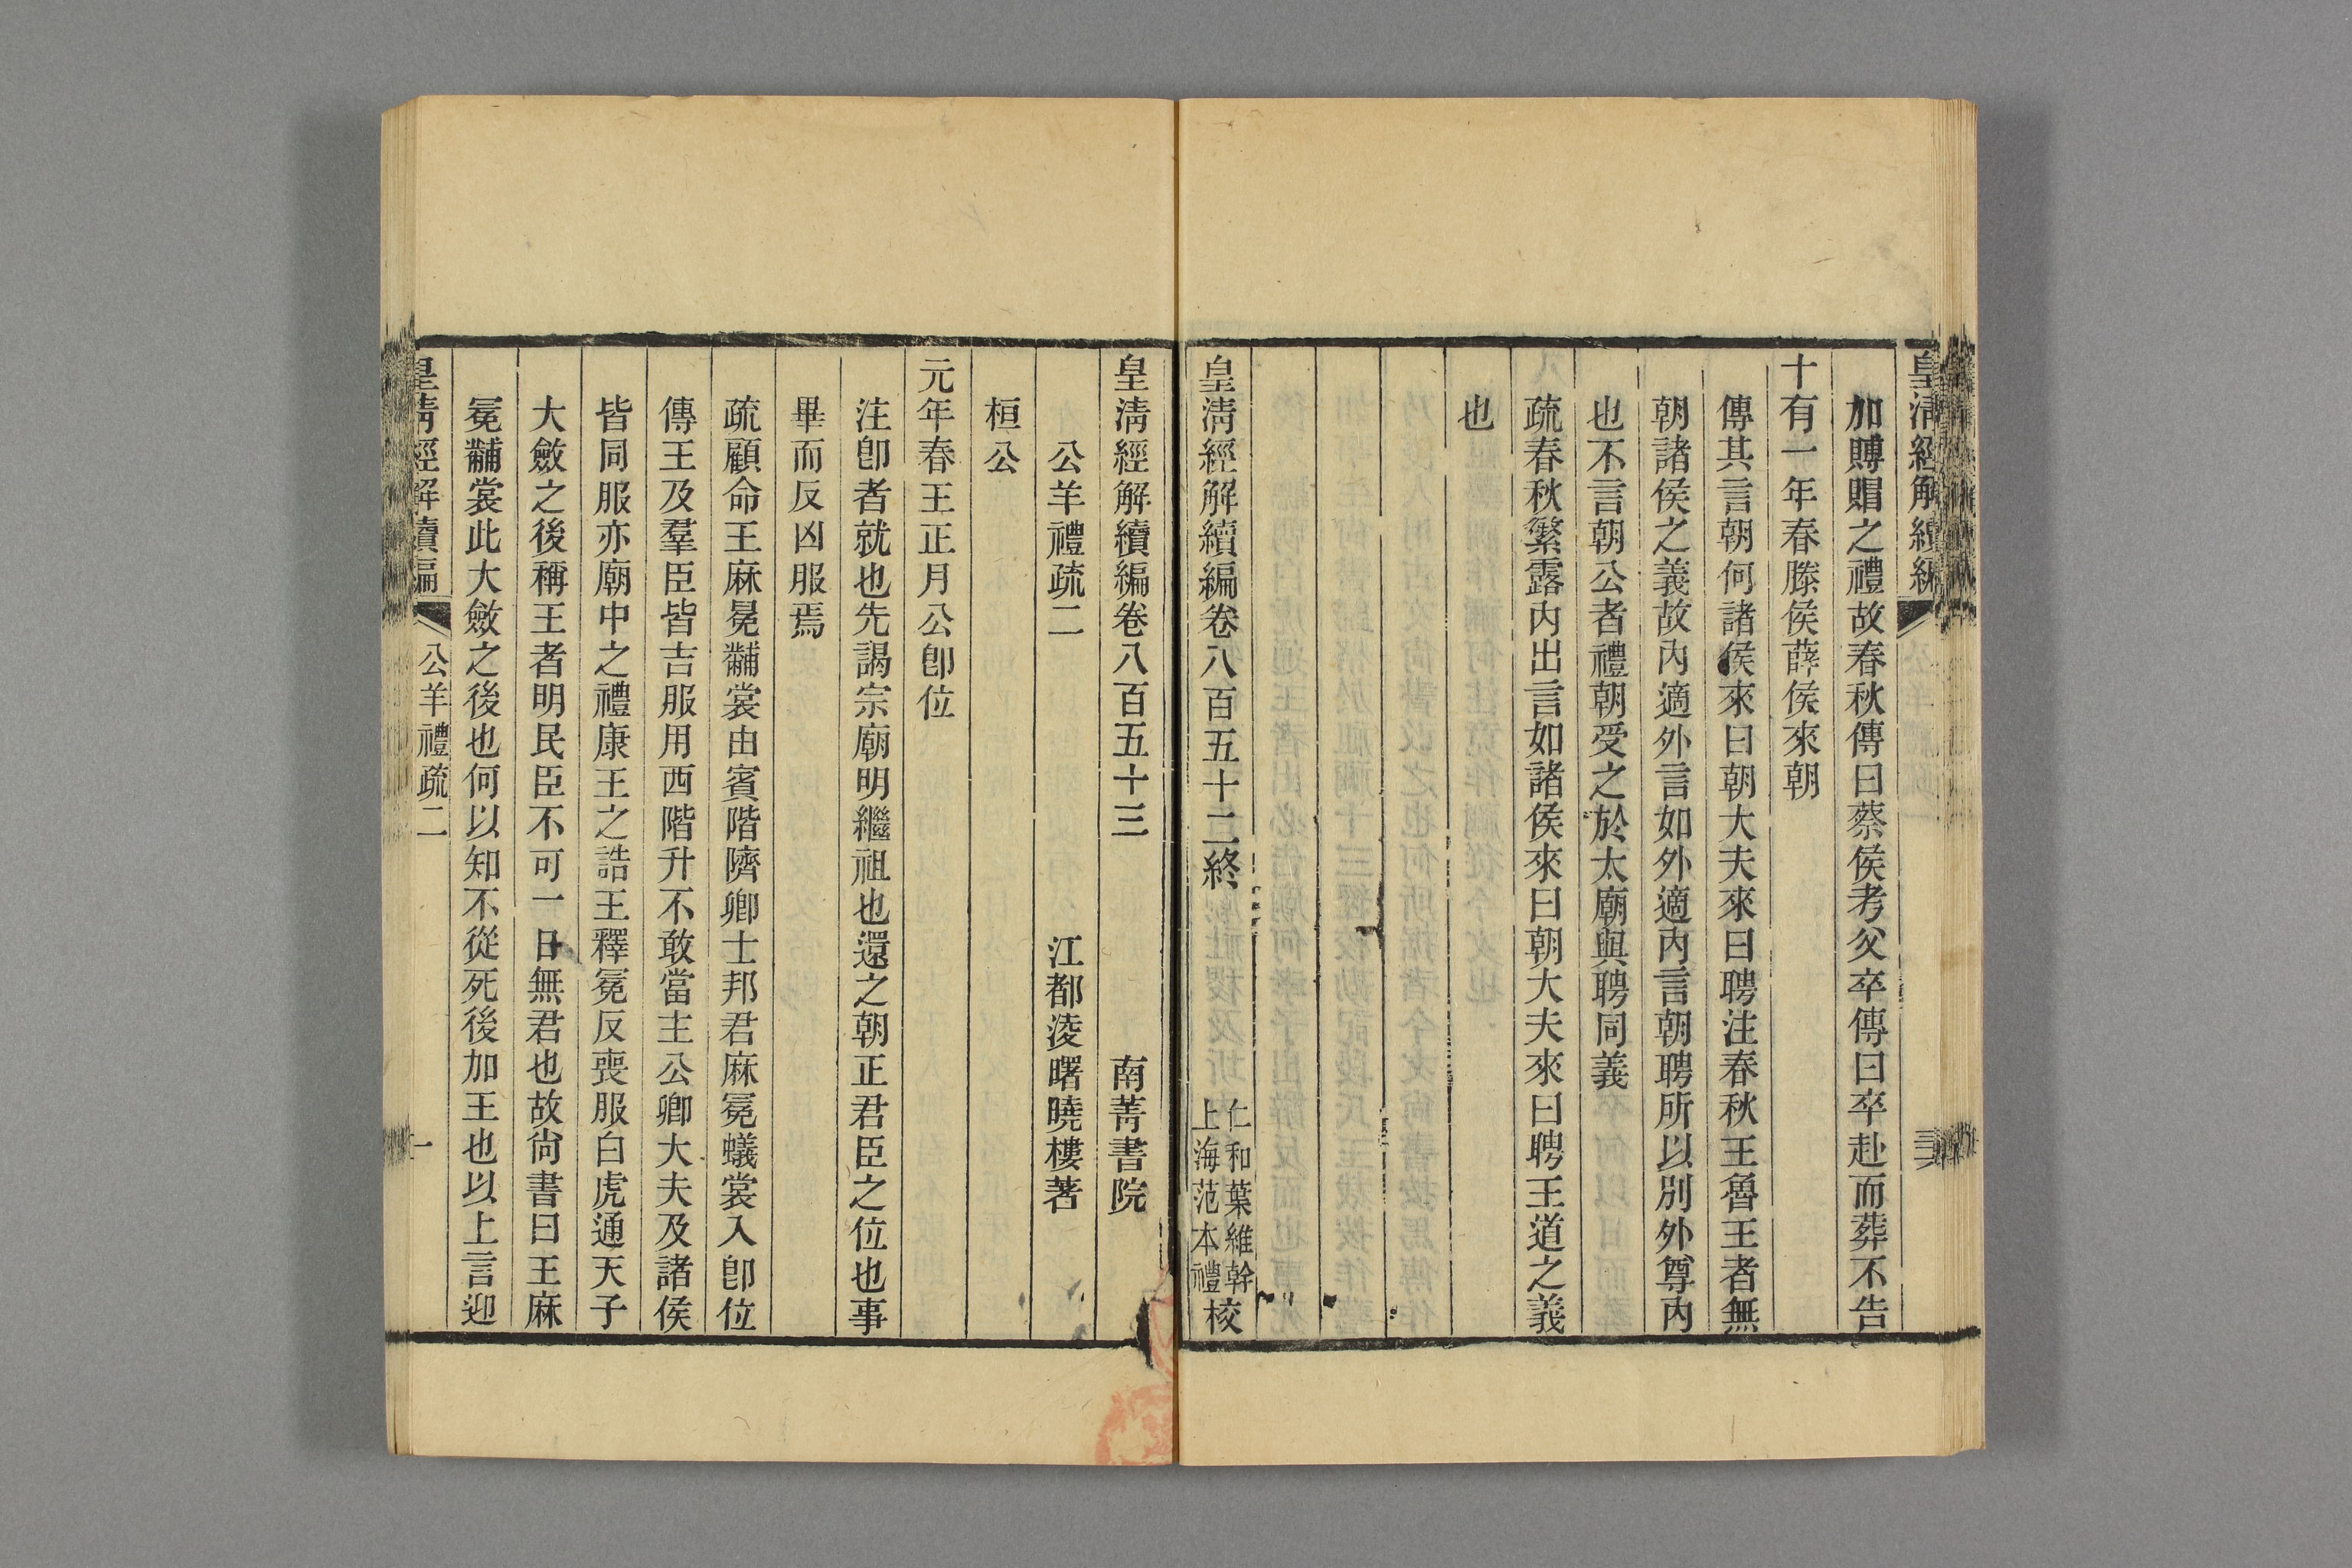 皇清經解續編
加賻賵之禮故春秋傳曰蔡侯考父卒傳曰卒赴而葬不告
十有一年春滕侯薛侯來朝
傳其言朝何諸侯來曰朝大夫來曰聘注春秋王魯王者無
朝諸侯之義故內適外言如外適內言朝聘所以別外尊內
也不言朝公者禮朝受之於太廟與聘同義
疏春秋繁露內出言如諸侯來曰朝大夫來曰聘王道之義
也
皇清經解續編卷八百五十二終
仁和葉維幹
上海范本禮
校
皇清經解續編卷八百五十三
南菁書院
公羊禮疏二
江都淩曙曉樓著
桓公
元年春王正月公卽位
注卽者就也先謁宗廟明繼祖也還之朝正君臣之位也事
畢而反凶服焉
疏顧命王麻冕黼裳由賓階隮卿士邦君麻冕蟻裳入卽位
傳王及羣臣皆吉服用西階升不敢當主公卿大夫及諸侯
皆同服亦廟中之禮康王之誥王釋冕反喪服白虎通天子
大斂之後稱王者明民臣不可一日無君也故尙書曰王麻
冕黼裳此大斂之後也何以知不從死後加王也以上言迎
皇清經解續編
公羊禮疏二
一